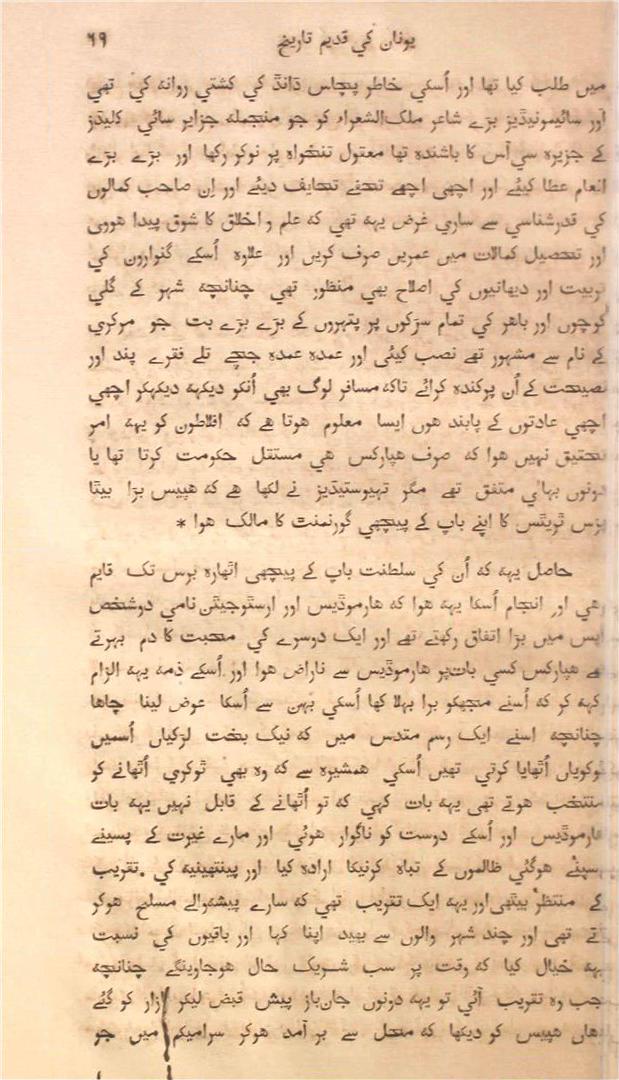 یونان کي قدیم تاریخ ۶۹
میں طلب کیا تھا اور اُسکی خاطر پچاس ڈانڈ کی کشتي روانہ کي تھي
اور سائیمونیڈیز بڑے شاعر ملک‌الشعراء کو جو منجملہ جزایر سائي کلیڈز
کے جزیرہ سي‌آس کا باشندہ تھا معقول تنخواہ پر نوکر رکھا اور بڑے بڑے
انعام عطا کیئے اور اچھی اچھے تحفے تحایف دیئے اور اِن صاحب کمالوں
کي قدرشناسي سے ساري غرض یہہ تھي کہ علم و اخلاق کا شوق پیدا هووی
اور تحصیل کمالات میں عمریں صرف کریں اور علاوہ اُسکے گنوارون کي
تربیت اور دیہاتیوں کي اصلاح بھي منظور تھي چنانچہ شہر کے گلي
کوچوں اور باهر کي تمام سڑکوں پر پتہروں کے بڑے بڑے بت جو مرکري
کے نام سے مشہور تھے نصب کیئی اور عمدہ عمدہ جچے تلے فقرے پند اور
نصیحت کے اُن پرکندہ کرائے تاکہ مسافر لوگ بھي اُنکو دیکہہ دیکہکر اچھي
اچھي عادتوں کے پابند هوں ایسا معلوم هوتا هے کہ افلاطون کو یہہ امر
تحقیق نہیں هوا کہ صرف هپارکس هي مستقل حکومت کرتا تھا یا
دونوں بہائي متفق تھے مگر تہیوسیڈیز نے لکھا هے کہ هپیس بڑا بیٹا
پزس ٹریٹس کا اپنے باپ کے پیچھي گورنمنٹ کا مالک هوا *
حاصل یہہ کہ اُن کي سلطنت باپ کے پیچھي اٹھارہ برس تک قایم
رهي اور انجام اُسکا یہہ هوا کہ هارموڈیس اور ارسٹوجیٹن نامي دوشخص
آپس میں بڑا اتفاق رکھتے تھے اور ایک دوسرے کي محبت کا دم بہرتے
تھے هپارکس کسي بات‌پر هارموڈیس سے ناراض هوا اور اُسکے ذمہ یہہ الزام
رکہہ کر کہ اُسنے مجھکو برا بہلا کہا اُسکي بہن سے اُسکا عوض لینا چاها
چنانچہ اسنے ایک رسم مقدس میں کہ نیک بخت لڑکیاں اُسمیں
ٹوکریاں اُٹھایا کرتي تھیں اُسکي همشیرہ سے کہ وہ بھي ٹوکري اُٹھانے کو
منتخب هوئے تھي یہہ بات کہي کہ تو اُٹھانے کے قابل نہیں یہہ بات
هارموڈیس اور اُسکے دوست کو ناگوار هوئي اور مارے غیرت کے پسینے
پسینے هوگئي ظالموں کے تباہ کرنیکا ارادہ کیا اور پینتھینیہ کي تقریب
کے منتظر بیٹھی اور یہہ ایک تقریب تھي کہ سارے پیشہ‌والے مسلح هوکر
آتے تھي اور چند شہر والوں سے بھید اپنا کہا اور باقیوں کي نسبت
یہہ خیال کیا کہ وقت پر سب شریک حال هوجاوینگے چنانچہ
جب وہ تقریب آئي تو یہہ دونوں جان‌باز پیش قبض لیکر بازار کو گئے
وهاں هپیس کو دیکھا کہ محل سے بر آمد هوکر سرامیکم میں جو